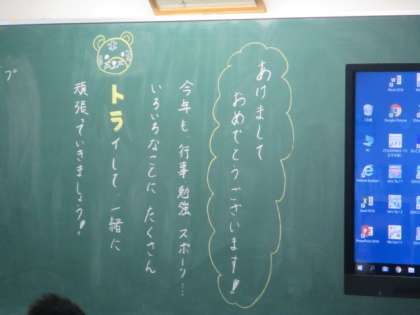 あけまして
おめでとうございます!!
今年も 行事 勉強 スポーツ…
いろいろなことに たくさん
トライして 一緒に
頑張っていきましょう!!
プ
Google Chrome